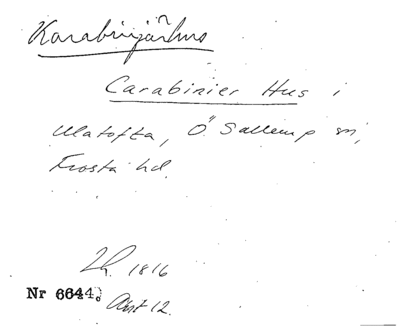 Karabinjärhus
Carabinier Hus i
Ö. Sallerup sn,
Frosta hd.
1816
Nr 6644. Avt 12.